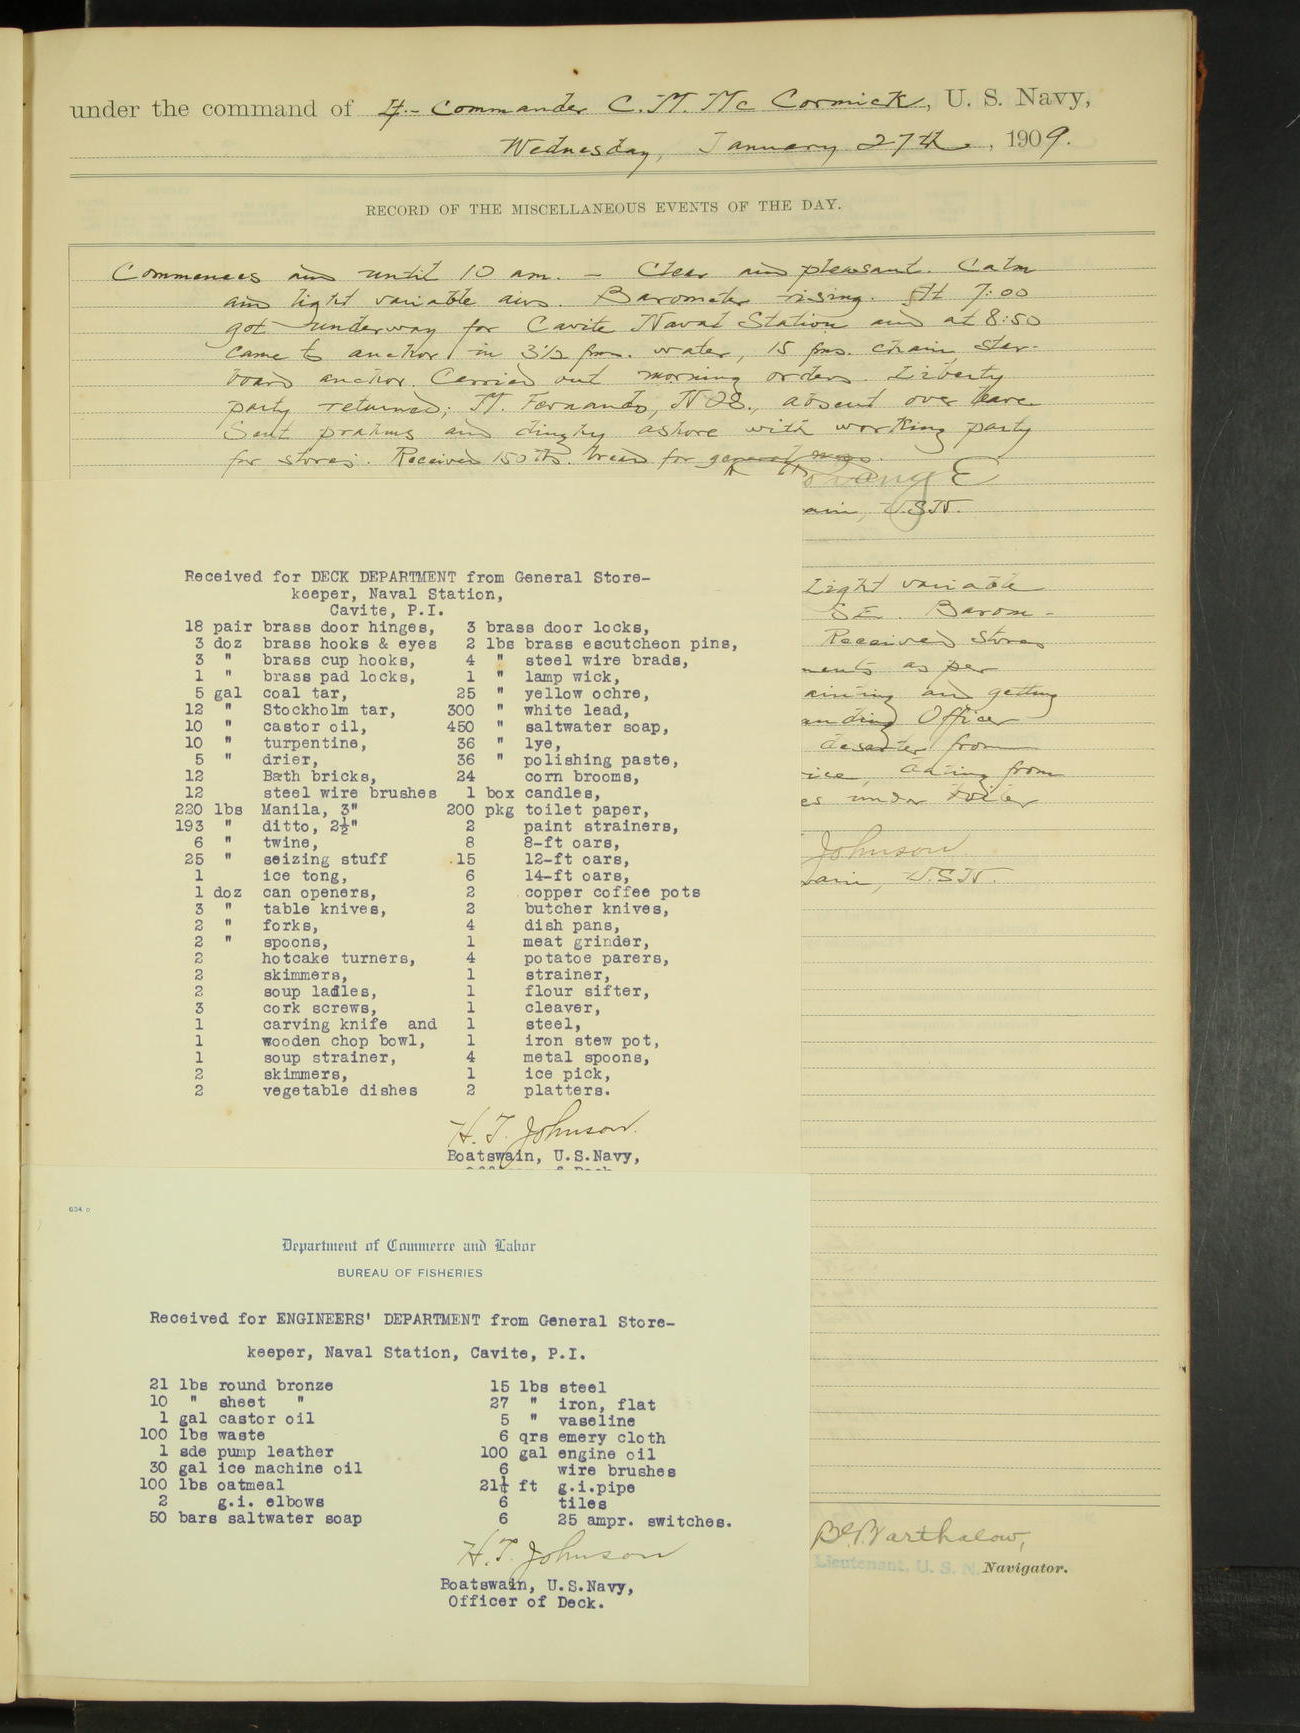 under the command of Lt.-Commander C. M. McCormick, U. S. Navy,
Wednesday, January 27th, 1909.
RECORD OF THE MISCELLANEOUS EVENTS OF THE DAY.
Commences and until 10 am. – Clear and pleasant. Calm
and light variable airs. Barometer rising. At 7:00
got underway for Cavite Naval Station and at 8:50
came to anchor in 3 1/2 fms. water, 15 fms. chain, star-
board anchor. Carried out morning orders. Liberty
party returned; M. Fernando, absent over leave
Sent prahms and dinghy ashore with working party
for stores. Received 150 lbs. bread for general mess.
ain, USN.
Light variable
SE. Barom-
Received stores
ments as per
ainting and getting
anding Officer
deserter from
ice, dating from
es under
Johnson
ain, U.S.N.
Received for DECK DEPARTMENT from General Store-
keeper, Naval Station,
Cavite, P.I.
18 pair brass door hinges, 3 brass door locks,
3 doz brass hooks & eyes 2 lbs brass escutcheon pins,
3 " brass cup hooks, 4 " steel wire brads,
1 " brass pad locks, 1 " lamp wick,
5 gal coal tar, 25 " yellow ochre,
12 " Stockholm tar, 300 " white lead,
10 " castor oil, 450 " saltwater soap,
10 " turpentine, 36 " lye,
5 " drier, 36 " polishing paste,
12 Bath bricks, 24 corn brooms,
12 steel wire brushes 1 box candles,
220 lbs Manila, 3" 200 pkg toilet paper,
193 " ditto, 2½" 2 paint strainers,
6 " twine, 8 8-ft oars,
25 " seizing stuff 15 12-ft oars,
1 ice tong, 6 14-ft oars,
1 doz can openers, 2 copper coffee pots
3 " table knives, 2 butcher knives,
2 " forks, 4 dish pans,
2 " spoons, 1 meat grinder,
2 hotcake turners, 4 potatoe parers,
2 skimmers, 1 strainer,
2 soup ladles, 1 flour sifter,
3 cork screws, 1 cleaver,
1 carving knife and 1 steel,
1 wooden chop bowl, 1 iron stew pot,
1 soup strainer, 4 metal spoons,
2 skimmers, 1 ice pick,
2 vegetable dishes 2 platters.
H. T. Johnson.
Boatswain, U.S.Navy,
Department of Commerce and Labor
BUREAU OF FISHERIES
Received for ENGINEERS' DEPARTMENT from General Store-
keeper, Naval Station, Cavite, P.I.
21 lbs round bronze 15 lbs steel
10 " sheet " 27 " iron, flat
1 gal castor oil 5 " vaseline
100 lbs waste 6 qrs emery cloth
1 sde pump leather 100 gal engine oil
30 gal ice machine oil 6 wire brushes
100 lbs oatmeal ft g.i.pipe
2 g.i. elbows 6 tiles
50 bars saltwater soap 6 25 ampr. switches.
H. T. Johnson
Boatswain, U.S.Navy,
Officer of Deck.
Barthalow,
Lieutenant, U. S. N. Navigator.